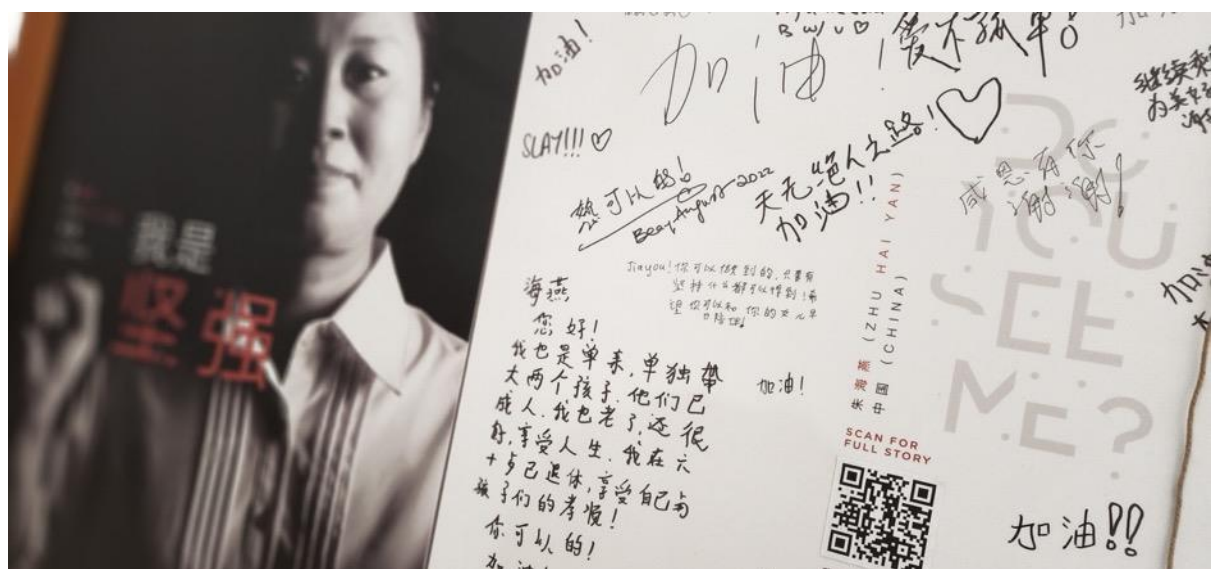 我是
坚强
加油!
B w/ u ♡
加油!
爱不孤单!
加油
SLAY!!! ♡
您可以的!
August 2022
天无绝人之路!
加油!!
感恩有你
谢谢!
继续
为美好
Jiayou! 你可以做到的, 只要有
坚持什么都可以得到!希
望你可以和你的女儿早
日陪伴!
海燕
您好!
我也是单亲,单独带
大两个孩子.他们已
成人.我也老了,还很
好,享受人生.我在六
十岁已退休,享受自己与
孩子们的孝顺!
你可以的!
加油
加油!
朱海燕 (ZHU HAI YAN)
中国 (CHINA)
DO
YOU
SEE
ME?
SCAN FOR
FULL STORY
加油
加油!!